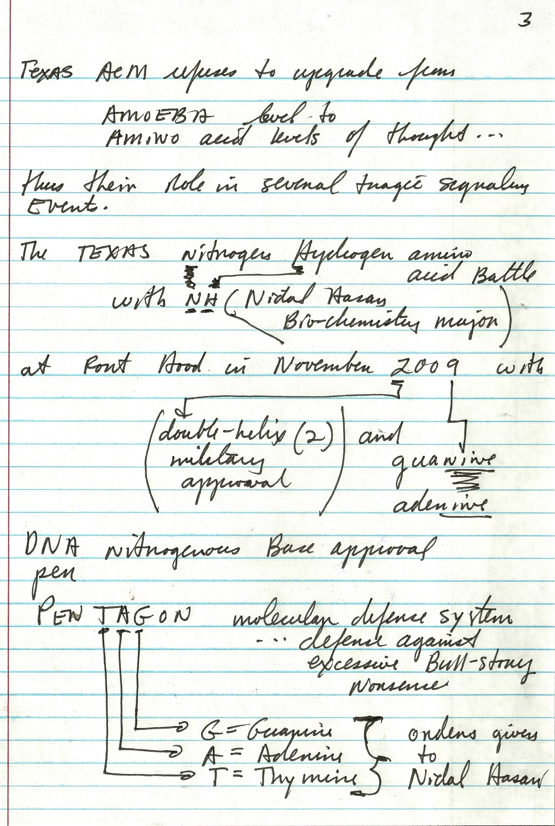 3
Texas A&M refuses to upgrade from
AMOEBA level to
AMINO acid levels of thought...
thus their Role in several tragic signaling
Events.
The TEXAS Nitrogen Hydrogen amino
acid Battle
with NH (Nidal Hasan
Bio-chemistry major)
at Fort Hood in November 2009 with
(double-helix (2)
military
approval) and
guanine
adenine
DNA Nitrogenous Base approval
pen
PENTAGON molecular defense system
... defense against
excessive Bull-story
Nonsense
G = Guanine
A = Adenine
T = Thymine
orders given
to
Nidal Hasan